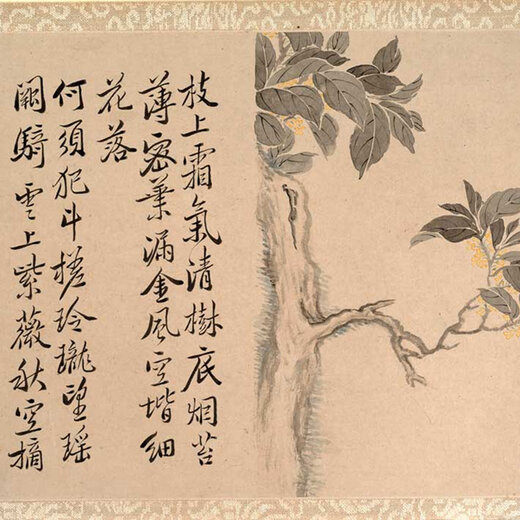 枝上霜氣清樹底烟苔
薄密葉漏金風空堦細
花落
何須犯斗槎玲瓏望瑶
闕騎雲上紫薇秋空摘